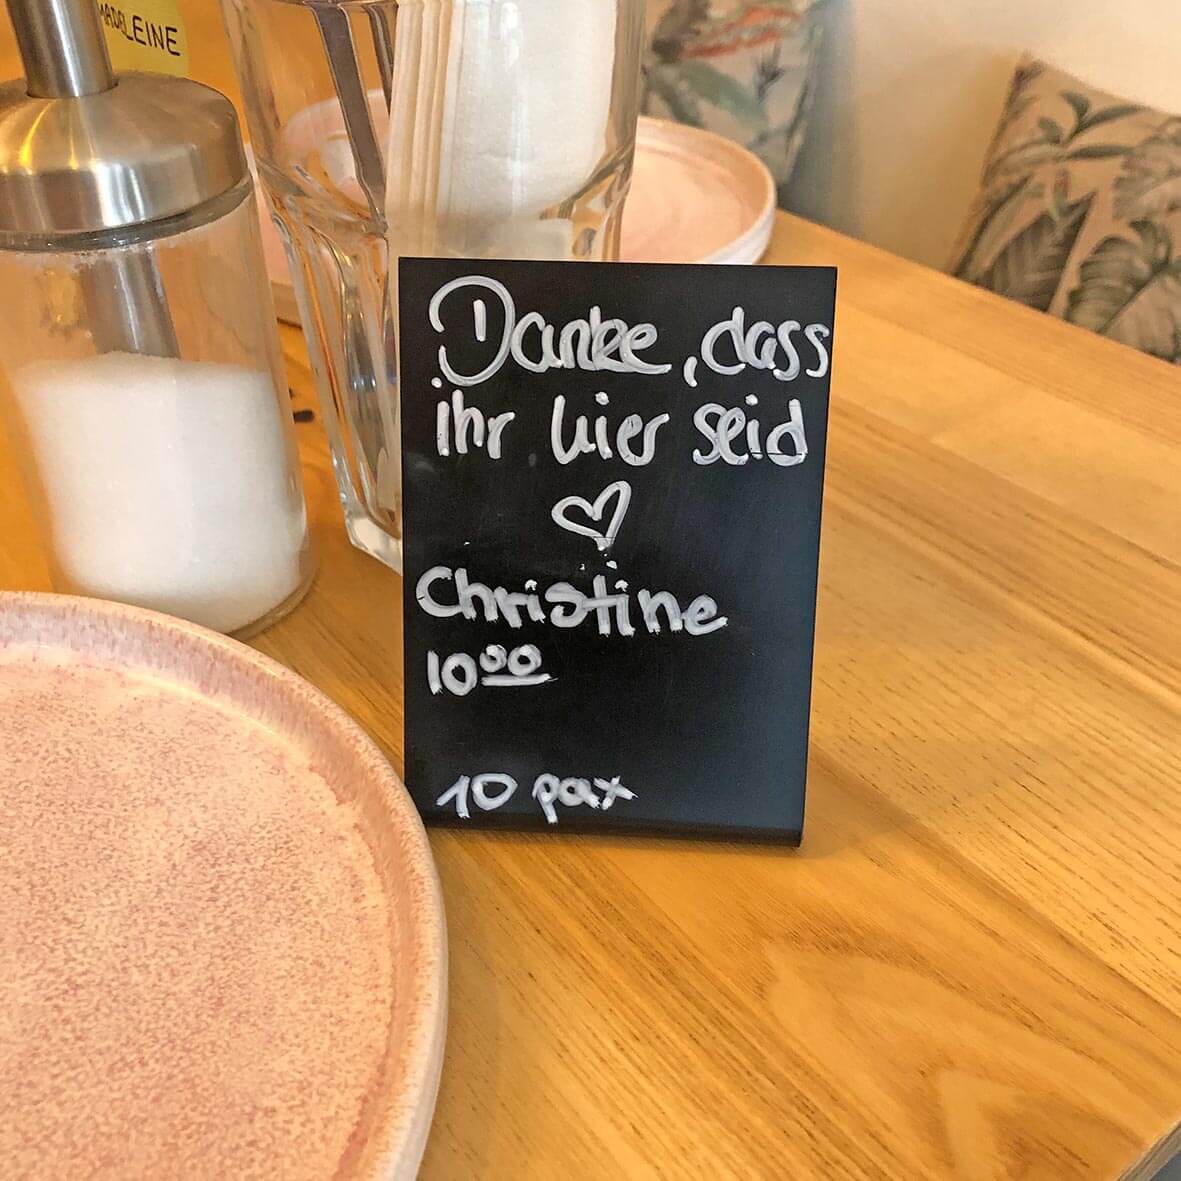 MADELEINE
Danke, dass
ihr hier seid
♡
Christine
10⁰⁰
10 pax